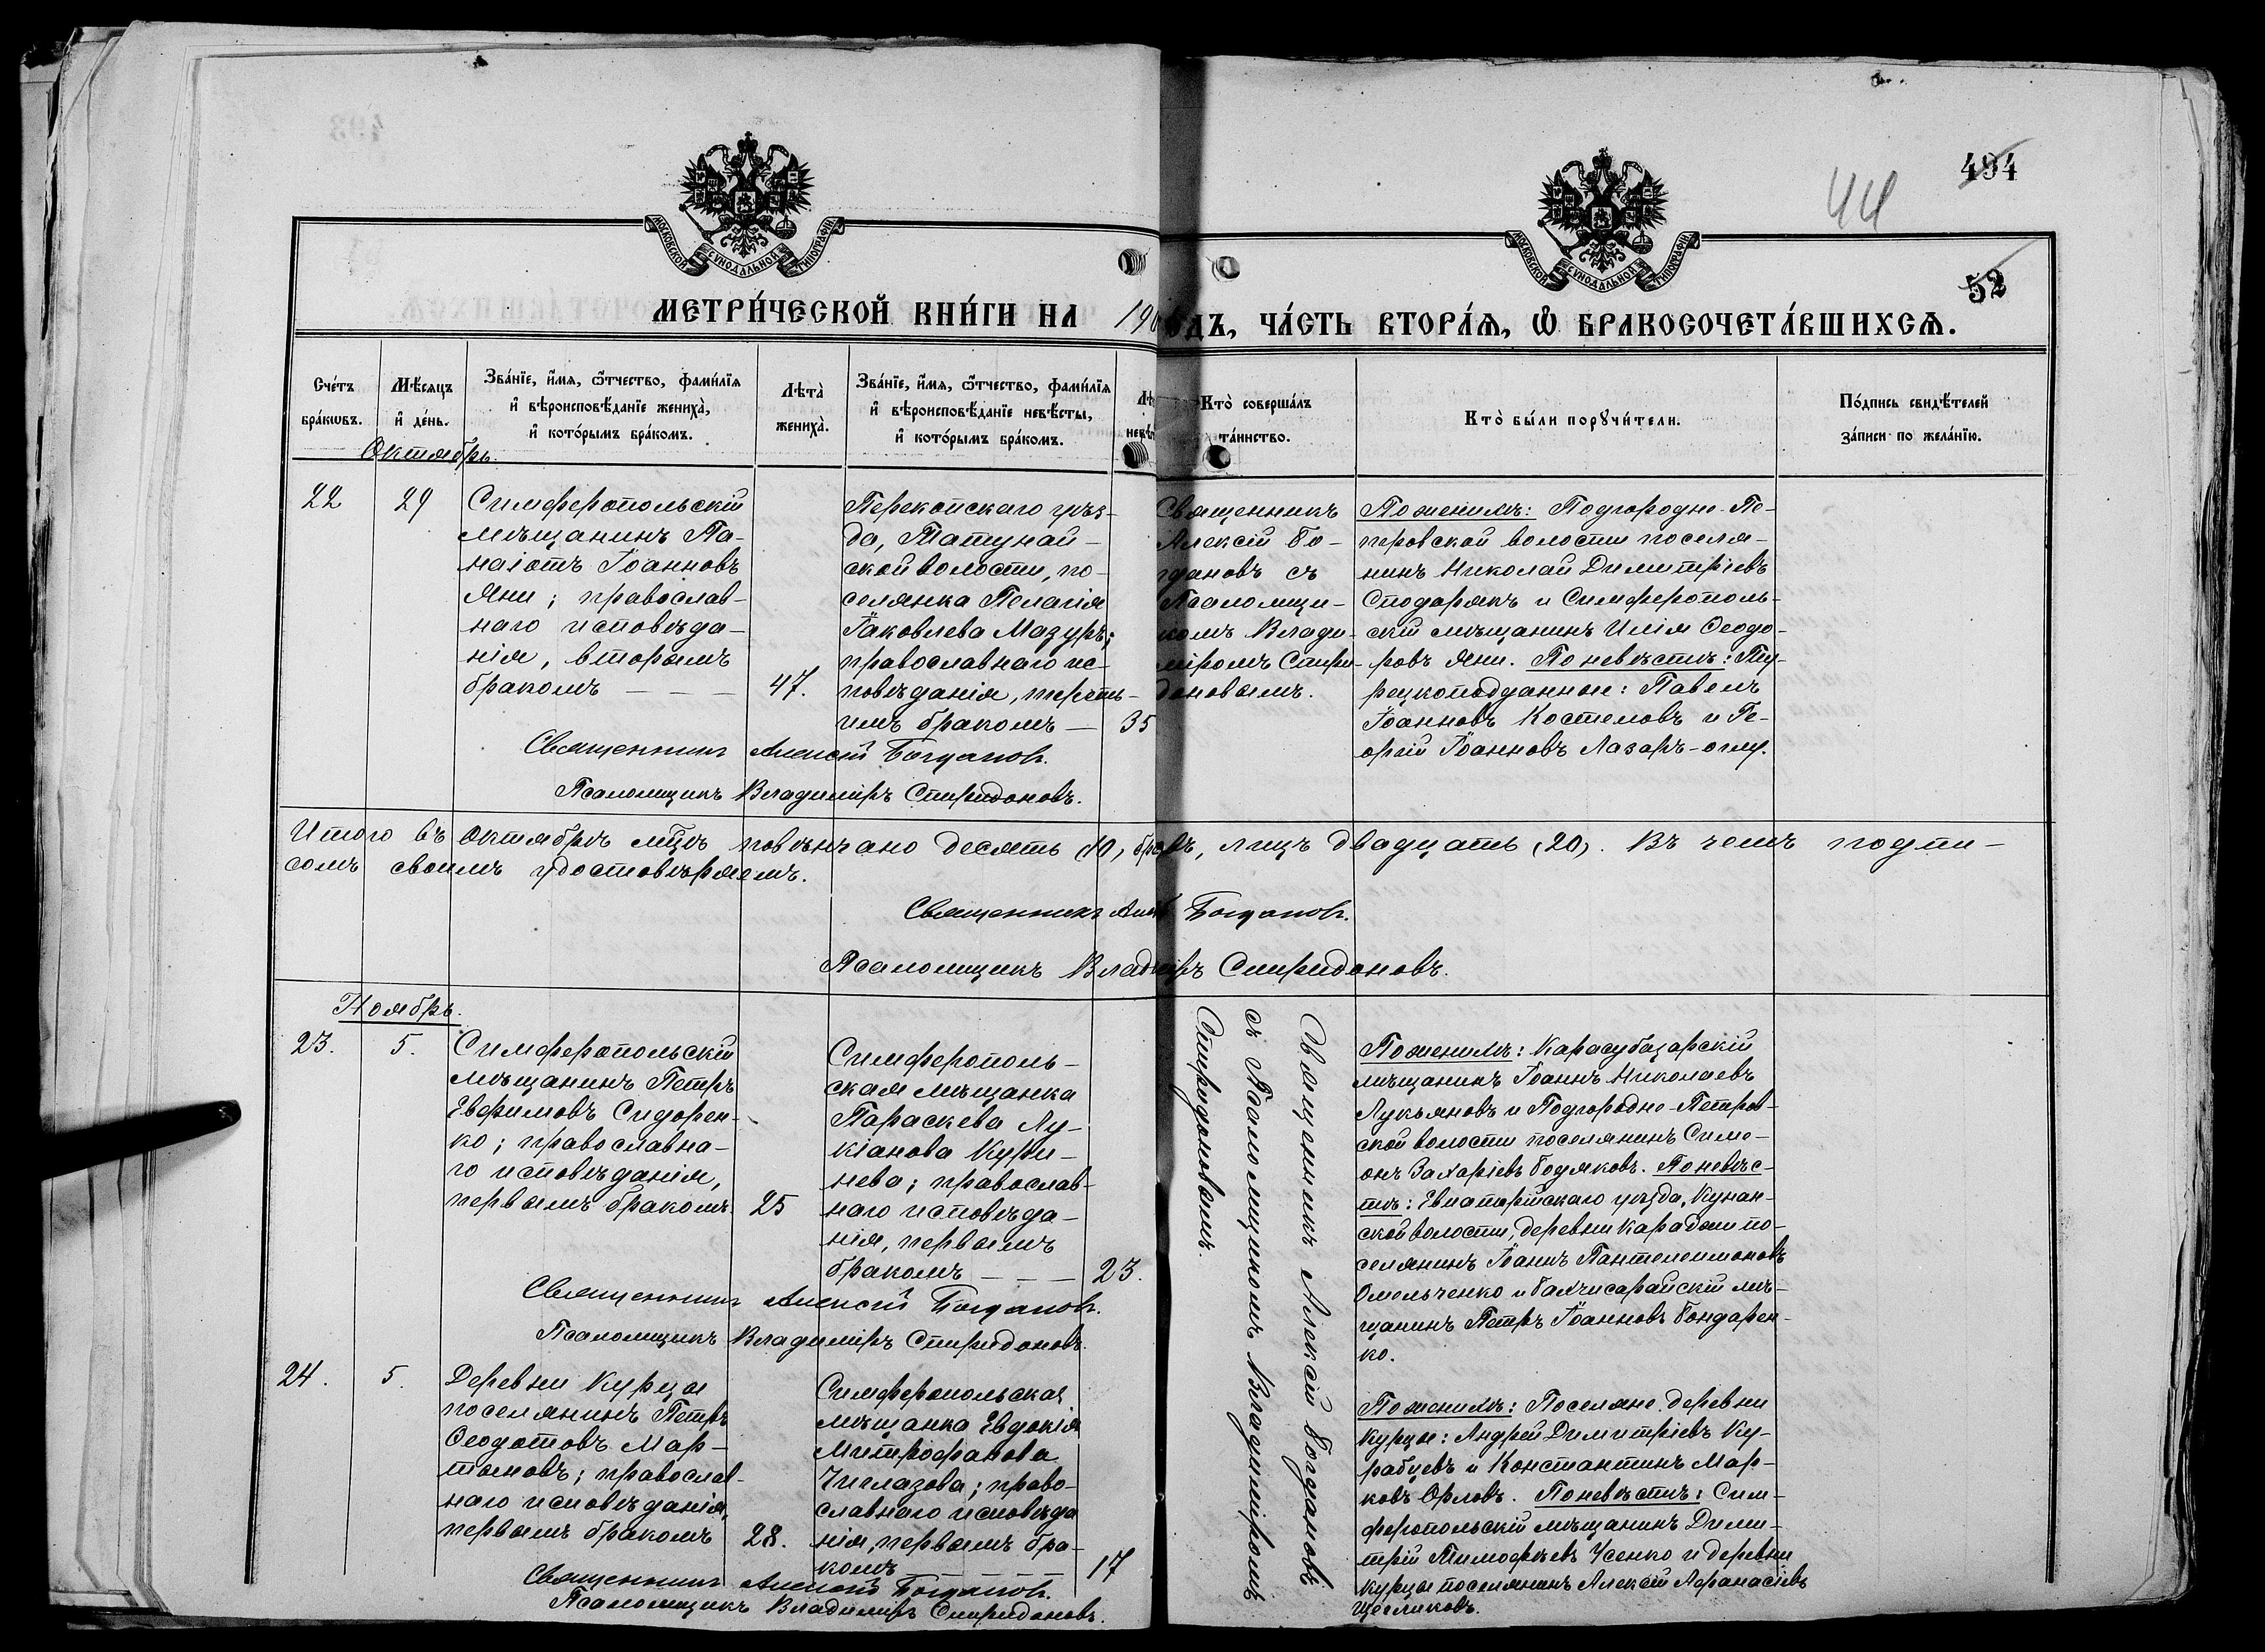 494
44
52
МОСКОВСКОЙ СѴНОДАЛЬНОЙ ТИПОГРАФІИ
МОСКОВСКОЙ СѴНОДАЛЬНОЙ ТИПОГРАФІИ
МЕТРИ́ЧЕСКОЙ КНИ́ГИ НА 190
ОДЪ, ЧА́СТЬ ВТОРА́Ѧ, Ѽ БРАКОСОЧЕТА́ВШИХСѦ.
Сче́тъ
бра́кѡвъ.
Мѣ́сяцъ
и҆ де́нь.
Зва́нїе, и҆́мя, ѻ҆́тчество, фами́лїя
и҆ вѣроисповѣ́данїе жениха̀,
и҆ кото́рымъ бра́комъ.
Лѣта̀
жениха̀.
Зва́нїе, и҆́мя, ѻ҆́тчество, фами́лїя
и҆ вѣроисповѣ́данїе невѣ́сты,
и҆ кото́рымъ бра́комъ.
Лѣ
невѣ
Кто̀ соверша́лъ
та́инство.
Кто̀ бы́ли порꙋчи́тели.
По́дпись свидѣ́телей
за́писи по жела́нїю.
Октябрь.
22
29
Симферопольскій
мѣщанинъ Па-
наіотъ Іоанновъ
Яни; православ-
наго исповѣда-
нія, вторымъ
бракомъ — — —
47.
Перекопскаго уѣз-
да, Татунай-
ской волости, по-
селянка Пелагія
Іаковлева Мазуръ;
православнаго ис-
повѣданія, треть-
имъ бракомъ —
35
Священникъ
Алексій Бо-
гдановъ съ
Псаломщи-
комъ Влади-
міромъ Спири-
доновымъ.
По женихѣ: Подгородне-Пе-
тровской волости поселя-
нинъ Николай Димитріевъ
Сподарякъ и Симферополь-
скій мѣщанинъ Илія Ѳеодо-
ровъ Яни. По невѣстѣ: Ту-
рецкоподданные: Павелъ
Іоанновъ Костеловъ и Ге-
оргій Іоанновъ Лазаръ-оглу.
Священникъ Алексій Богдановъ.
Псаломщикъ Владиміръ Спиридоновъ.
Итого въ Октябрѣ мѣсѣ повѣнчано десять (10) бра въ, лицъ двадцать (20). Въ чемъ подпи-
сомъ своимъ удостовѣряемъ.
Священникъ Але Богдановъ.
Псаломщикъ Владиміръ Спиридоновъ.
Ноябрь.
23.
5.
Симферопольскій
мѣщанинъ Петръ
Евфимовъ Сидорен-
ко; православна-
го исповѣданія,
первымъ бракомъ.
25
Симферополь-
ская мѣщанка
Параскева Лу-
кіанова
нева; православ-
наго исповѣда-
нія, первымъ
бракомъ — — —
23.
Священникъ Алексій Богдановъ
съ Псаломщикомъ Владиміромъ
Спиридоновымъ.
По женихѣ: Карасубазарскій
мѣщанинъ Іоаннъ Николаевъ
Лукьяновъ и Подгородне-Петров-
ской волости поселянинъ Симе-
онъ Захаріевъ Будяковъ. По невѣс-
тѣ: Евпаторійскаго уѣзда, Кунан-
ской волости, деревни Карадаш по-
селянинъ Іоаннъ Пантелеимоновъ
Омельченко и Бахчисарайскій мѣ-
щанинъ Петръ Іоанновъ Бондарен-
ко.
Священникъ Алексій Богдановъ.
Псаломщикъ Владиміръ Спиридоновъ.
24.
5.
Деревни Курцы
поселянинъ Петръ
Ѳеодотовъ Мар-
тыновъ; православ-
наго исповѣданія,
первымъ бракомъ
28.
Симферопольская
мѣщанка Евдокія
Митрофанова
Чиглазова; право-
славнаго исповѣда
нія, первымъ бра-
комъ — — —
17
По женихѣ: Поселяне деревни
Курцы: Андрей Димитріевъ Ку-
рабцевъ и Константинъ Мар-
ковъ Орловъ. По невѣстѣ: Сим-
феропольскій мѣщанинъ Дими-
трій Тимофѣевъ Усенко и деревни
Курцы поселянинъ Алексій Афанасіевъ
Щегликовъ.
Священникъ Алексій Богдановъ.
Псаломщикъ Владиміръ Спиридоновъ.